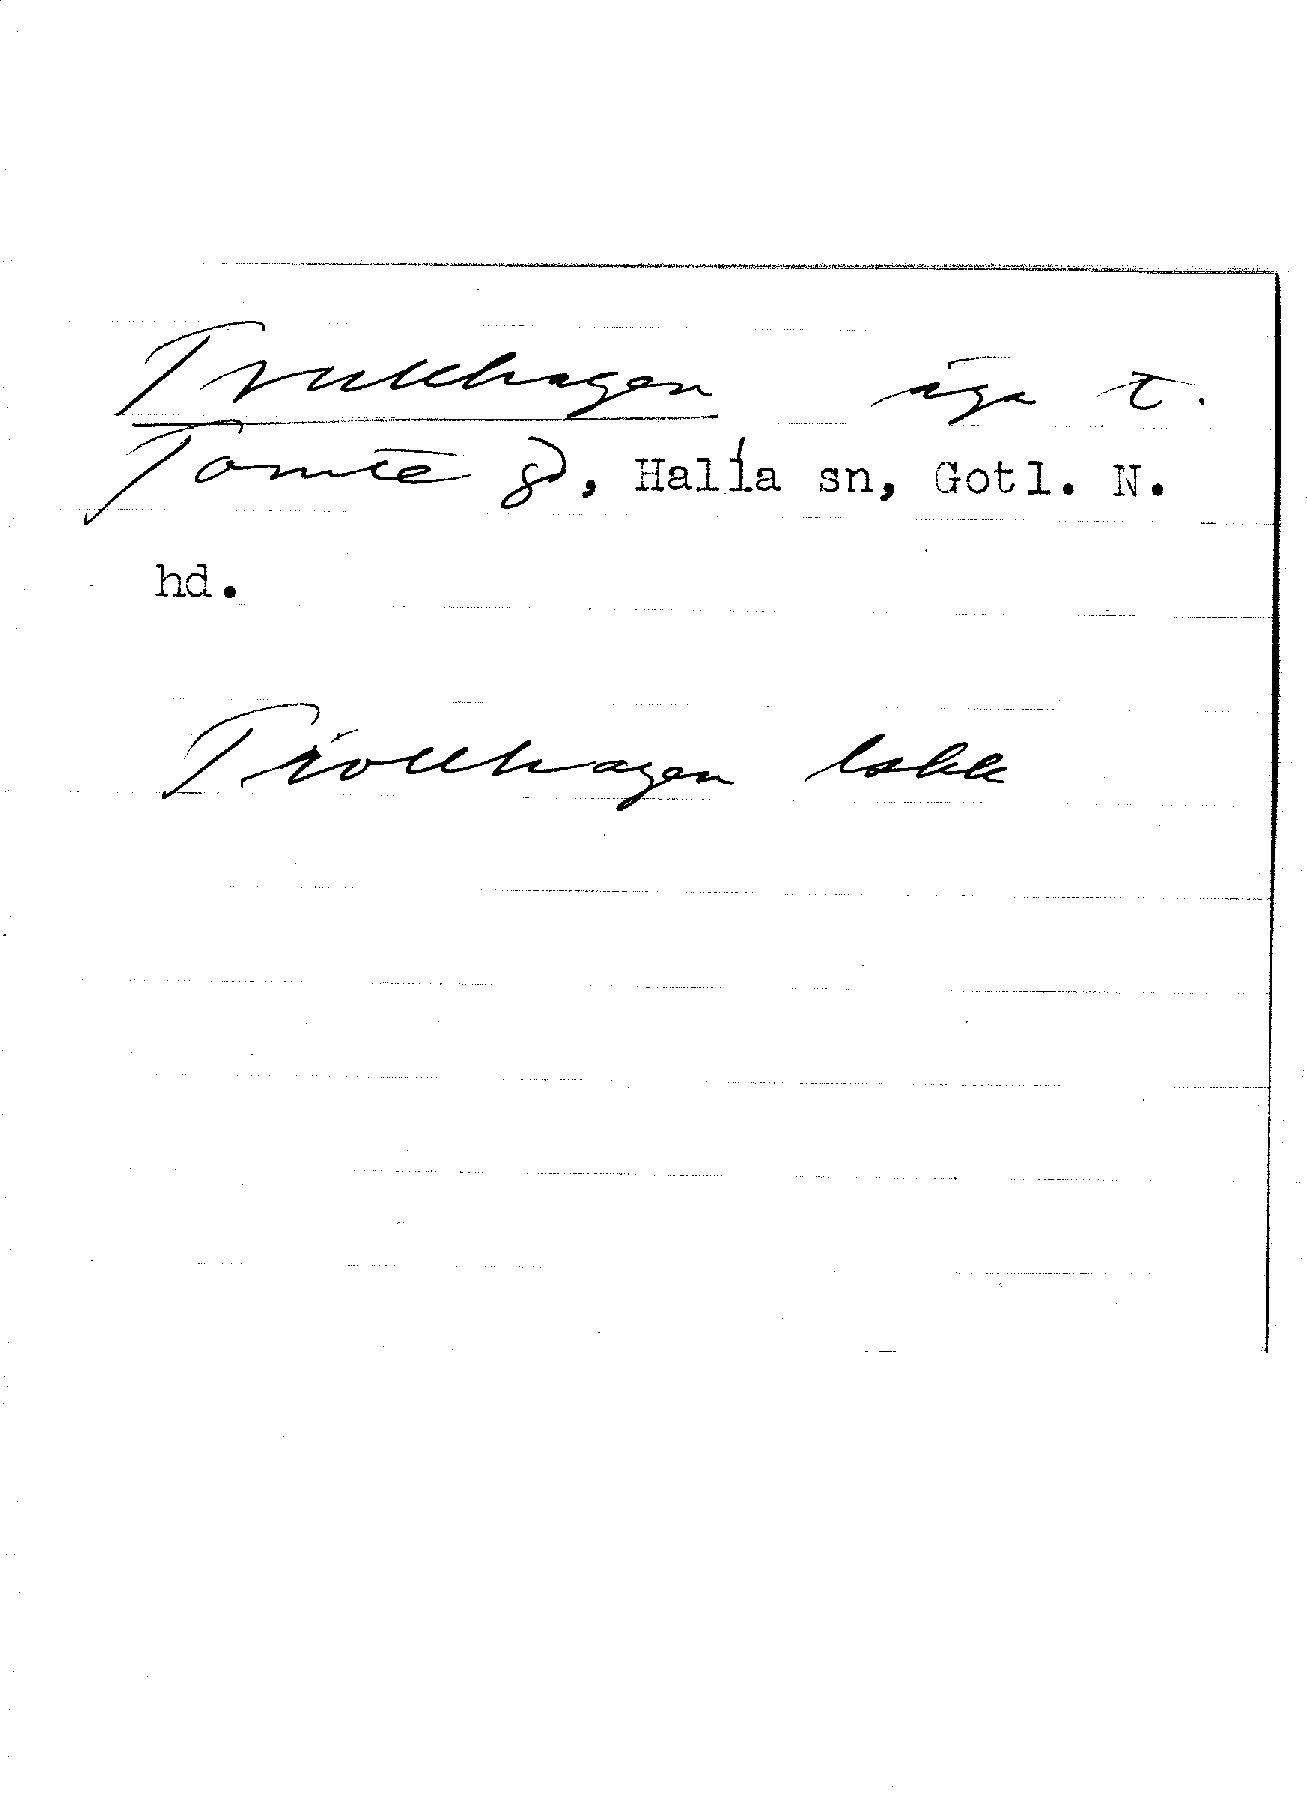 Trullhagen äga t.
Tomte gd, Halla sn, Gotl. N.
hd.
Trollhagen lskk